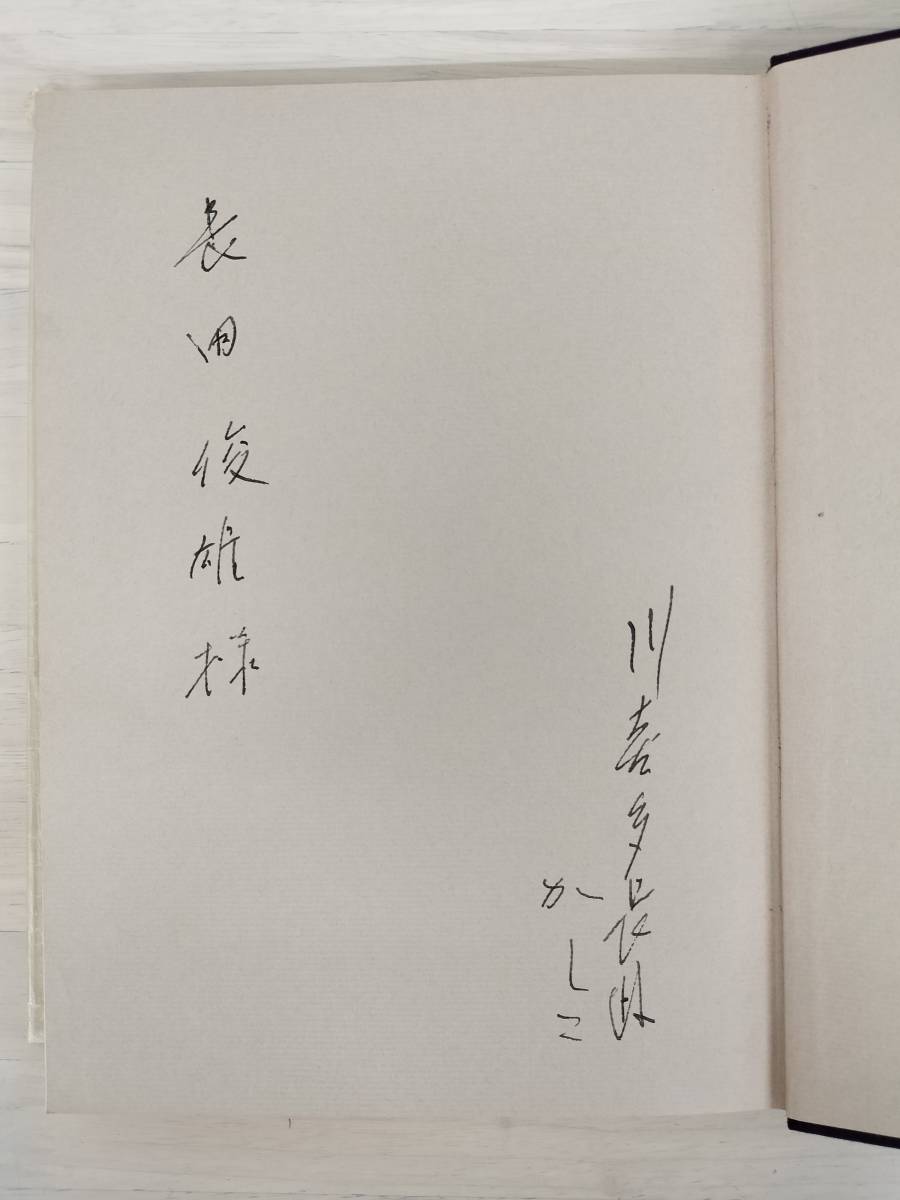 川喜多長政
かしこ
長田俊雄様